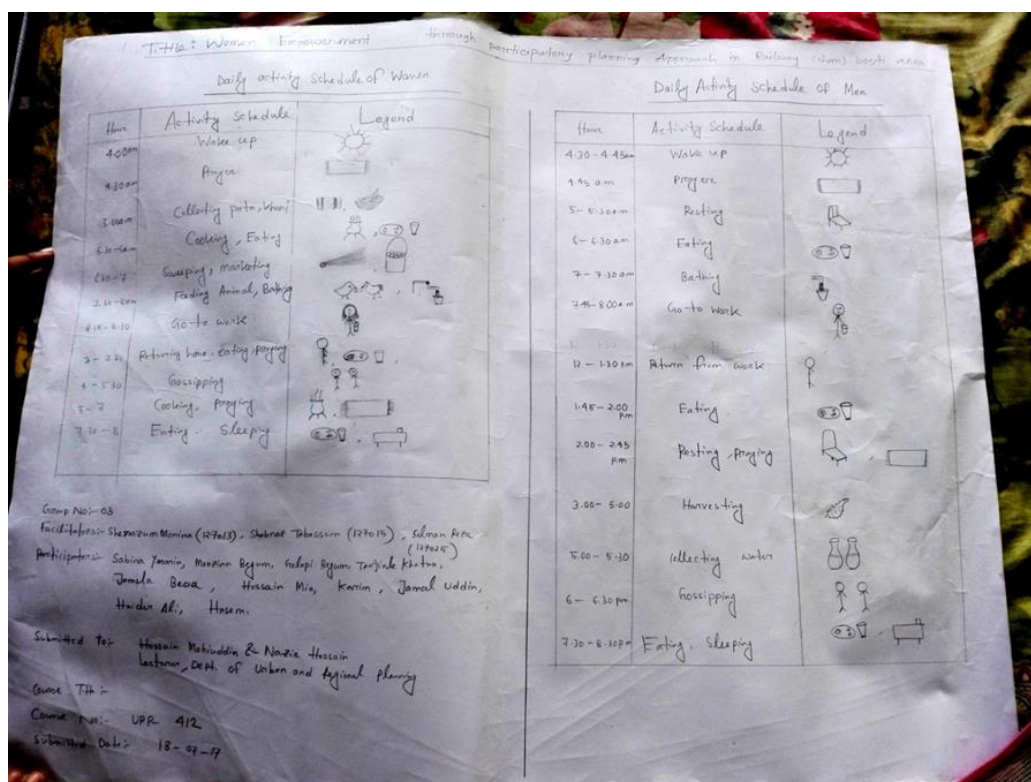 Tittle: Women Empowerment through participatory planning Approach in Railway (slum) bosti area
Daily activity Schedule of Women
Hour Activity Schedule Legend
4.00am Wake up
4.30am Prayer
5.00am Collecting pata, khori
Cooking, Eating
6.30-7 Sweeping, marketing
Feeding Animal, Bathing
Go to work
Returning home, eating, praying
4-5.30 Gossipping
5-7 Cooking, praying
7.30-8 Eating. Sleeping
Group No:- 03
Facilitators:- Shemazum Monina (127013), Shabnaz Tabassum (127015), Salman Reza (127025)
Participators:- Sabina Yasmin, Begum, Golapi Begum, Tanjila Khatun,
Jamela Bewa, Hossain Mia, Karim, Jamal Uddin,
Haidar Ali, Hasem.
Submitted to:- Hossain Mohiuddin & Nazia Hossain
Lecturer, Dept. of Urban and Regional Planning
Course Title:-
Course No:- URP 412
Submitted Date:- 18-07-17
Daily Activity Schedule of Men
Hour Activity Schedule Legend
4.30-4.45am Wake up
4.45 a.m Prayere
5-5.30a.m Resting
6-6.30am Eating
7-7.30am Bathing
7.45-8.00a.m Go to work
12-1.30pm Return from work
1.45-2.00 p.m Eating
2.00-2.45 p.m Resting, praying
3.00-5.00 Harvesting
5.00-5.30 Collecting water
6-6.30pm Gossipping
7.30-8.30pm Eating, Sleeping